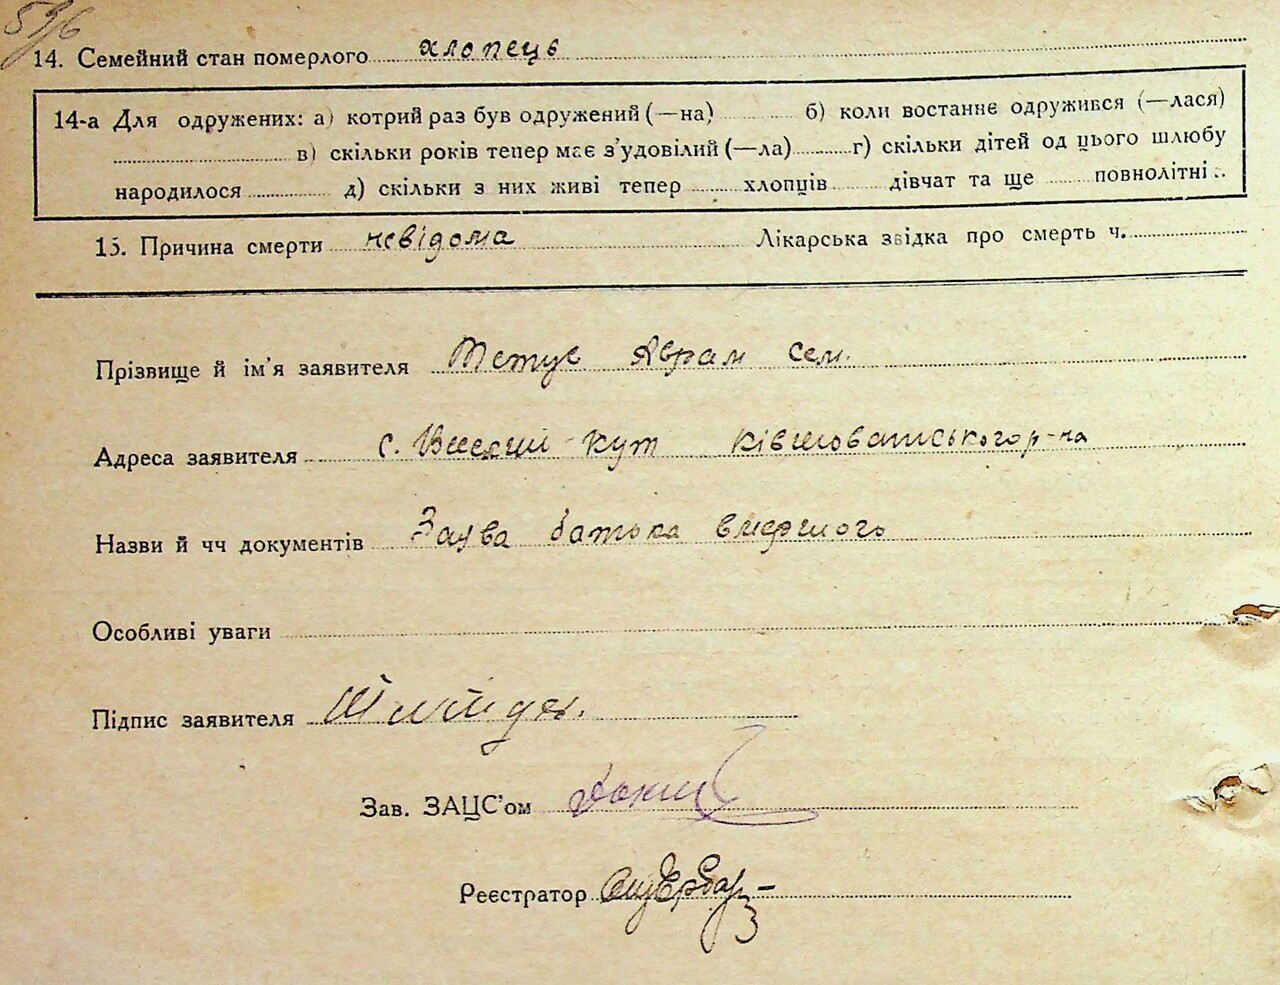 14. Семейний стан померлого хлопець
14-а Для одружених: а) котрий раз був одружений (—на) б) коли востаннє одружився (—лася)
в) скільки років тепер має з'удовілий (—ла) г) скільки дітей од цього шлюбу
народилося д) скільки з них живі тепер хлопців дівчат та ще повнолітні
15. Причина смерти невідома Лікарська звідка про смерть ч.
Прізвище й ім'я заявителя Аврам Сем.
Адреса заявителя с. кут Ківшоватського р-на
Назви й чч документів Заява батька вмершого
Особливі уваги
Підпис заявителя
Зав. ЗАЦС'ом
Реєстратор